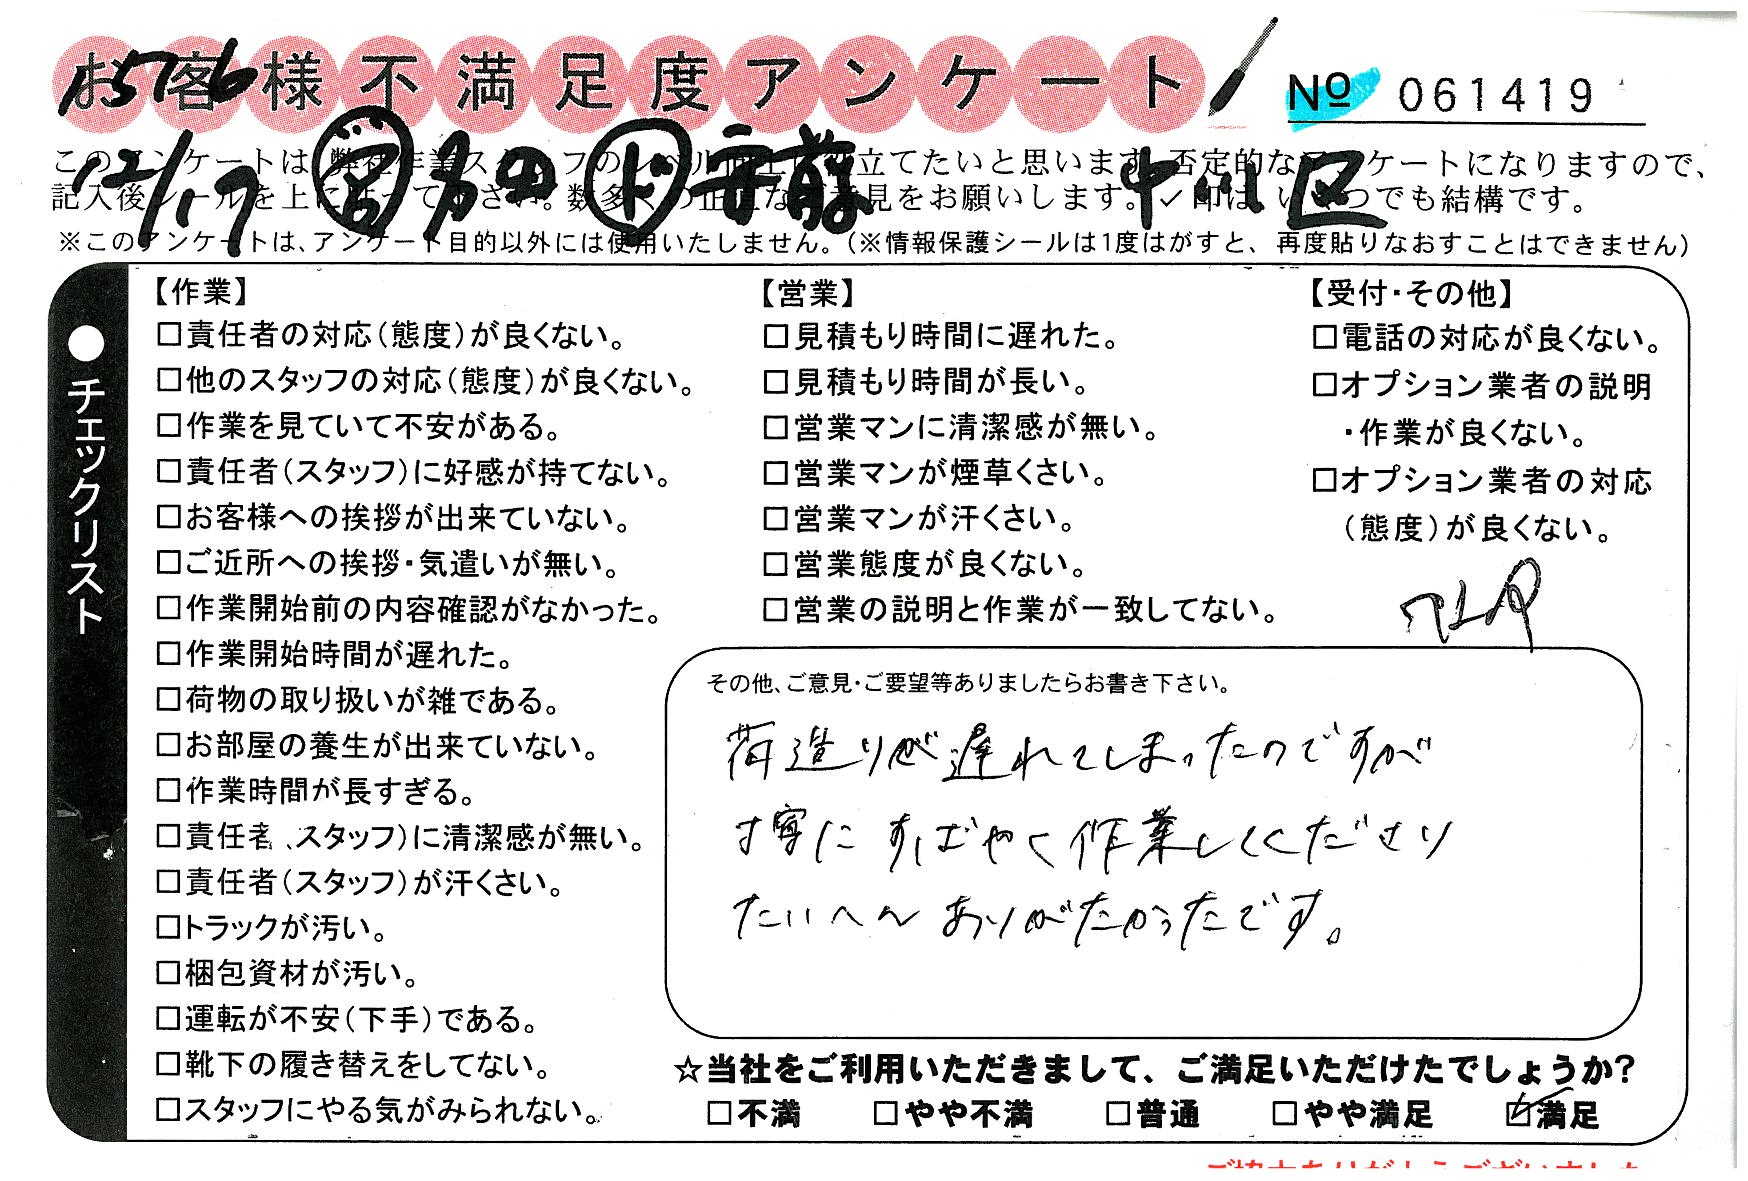 お客様不満足度アンケート
15716
№ 061419
12/17 ㊢ 多田 ㋣ 市前 中川区
このアンケートは、弊社作業スタッフのレベル向上に役立てたいと思います。否定的なアンケートになりますので、
記入後シールを上に貼って下さい。数多くの正直なご意見をお願いします。✓印は、いくつでも結構です。
※このアンケートは、アンケート目的以外には使用いたしません。(※情報保護シールは1度はがすと、再度貼りなおすことはできません)
●チェックリスト
【作業】
□責任者の対応(態度)が良くない。
□他のスタッフの対応(態度)が良くない。
□作業を見ていて不安がある。
□責任者(スタッフ)に好感が持てない。
□お客様への挨拶が出来ていない。
□ご近所への挨拶・気遣いが無い。
□作業開始前の内容確認がなかった。
□作業開始時間が遅れた。
□荷物の取り扱いが雑である。
□お部屋の養生が出来ていない。
□作業時間が長すぎる。
□責任者、スタッフ)に清潔感が無い。
□責任者(スタッフ)が汗くさい。
□トラックが汚い。
□梱包資材が汚い。
□運転が不安(下手)である。
□靴下の履き替えをしてない。
□スタッフにやる気がみられない。
【営業】
□見積もり時間に遅れた。
□見積もり時間が長い。
□営業マンに清潔感が無い。
□営業マンが煙草くさい。
□営業マンが汗くさい。
□営業態度が良くない。
□営業の説明と作業が一致してない。
【受付・その他】
□電話の対応が良くない。
□オプション業者の説明
・作業が良くない。
□オプション業者の対応
(態度)が良くない。
その他、ご意見・ご要望等ありましたらお書き下さい。
荷造りが遅れてしまったのですが
丁寧に すばやく作業してくださり
たいへん ありがたかったです。
☆当社をご利用いただきまして、ご満足いただけたでしょうか?
□不満 □やや不満 □普通 □やや満足 ☑満足
ご協力ありがとうございました